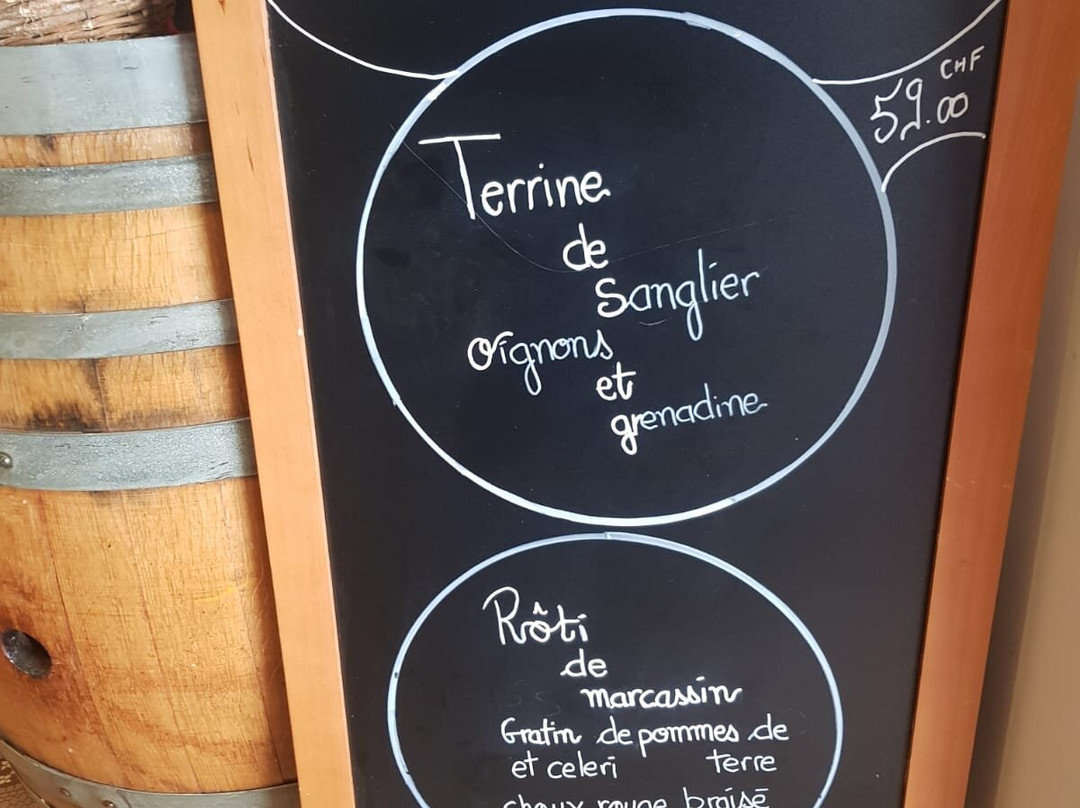 CHF
59.00
Terrine
de
Sanglier
oignons
et
grenadine
Rôti
de
marcassin
Gratin de pommes de
et celeri terre
choux rouge braisé